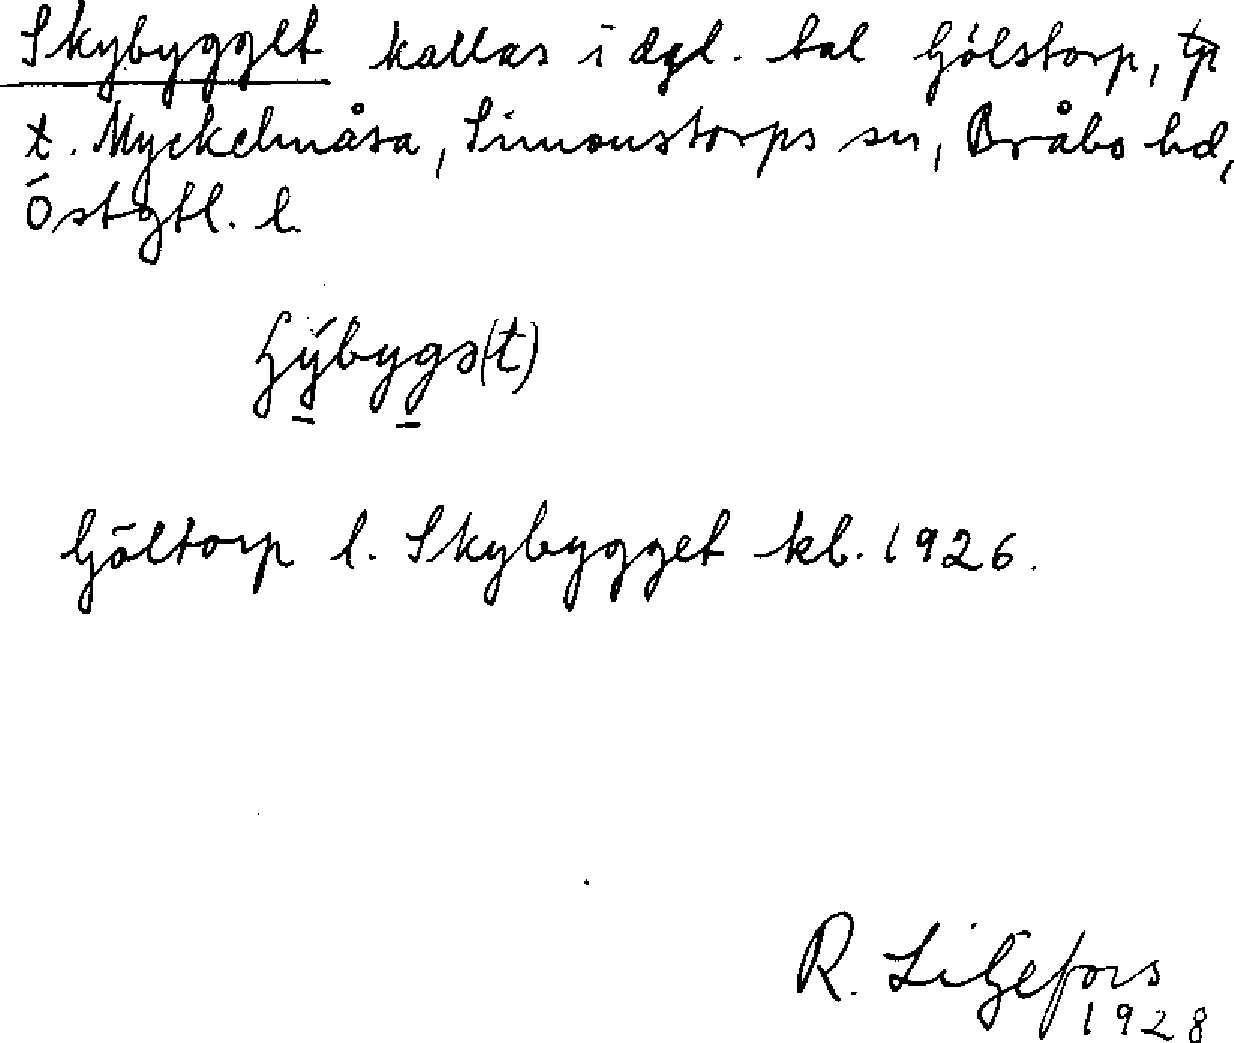 Skybygget kallas i dgl. tal Gölstorp, tp
t. Myckelmåsa, Simonstorps sn, Bråbo hd,
Östgtl. l.
Göltorp l. Skybygget kb. 1926.
R. Liljefors
1928